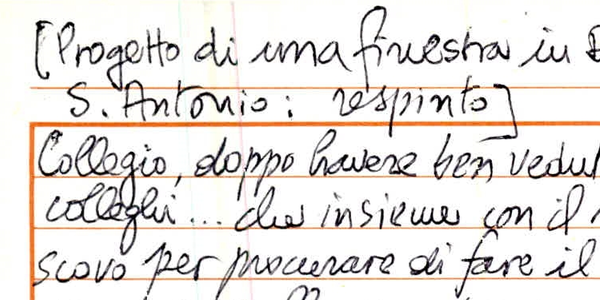 [Progetto di una finestra in
S. Antonio: respinto]
Collegio, doppo havere ben vedu
colleghi... che insieme con il
scovo per procurare di fare il